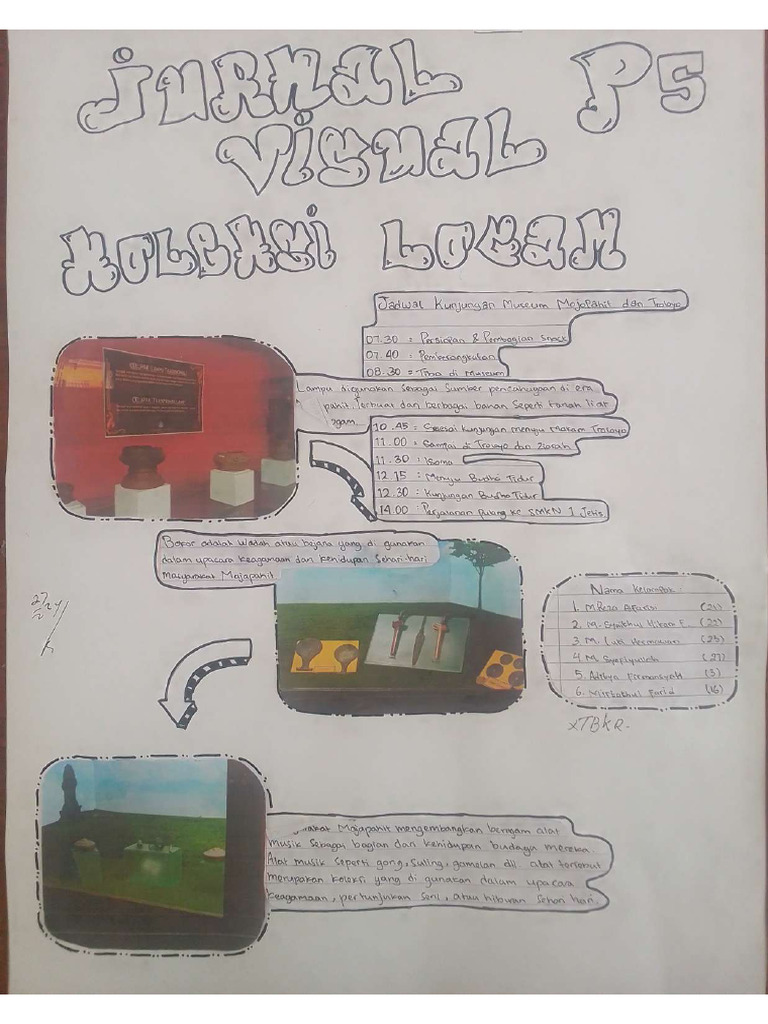 JURNAL P5
VISUAL
KOLEKSI LOGAM
Jadwal Kunjungan Museum MojoPahit dan Troloyo
07.30 = Persiapan & Pembagian Snack
07.40 = Pemberangkatan
08.30 = Tiba di Museum
Lampu digunakan sebagai Sumber pencahayaan di era
pahit. Terbuat dari berbagai bahan Seperti tanah liat
ogam
10.45 = Selesai Kunjungan menuju Makam Troloyo
11.00 = Sampai di Troloyo dan Ziarah
11.30 : Isoma
12.15 = Menuju Budha Tidur
12.30 : Kunjungan Budha Tidur
14.00 : Perjalanan pulang ke SMKN 1 Jetis
Bokor adalah Wadah atau bejana yang di gunakan
dalam upacara keagamaan dan kehidupan Sehari-hari
Masyarakat Majapahit
Nama Kelompok :
1. M Reza
2. M.
3 M. Hermawan (25)
4 M. (27)
5. Aditya Firmansyah (3)
6. Farid (16)
XTBKR.
rakat Majapahit mengembangkan beragam alat
musik sebagai bagian dari kehidupan budaya mereka
Alat musik seperti gong, suling, gamelan dll alat tersebut
merupakan koleksi yang di gunakan dalam upacara
keagamaan, pertunjukan seni, atau hiburan sehari hari.